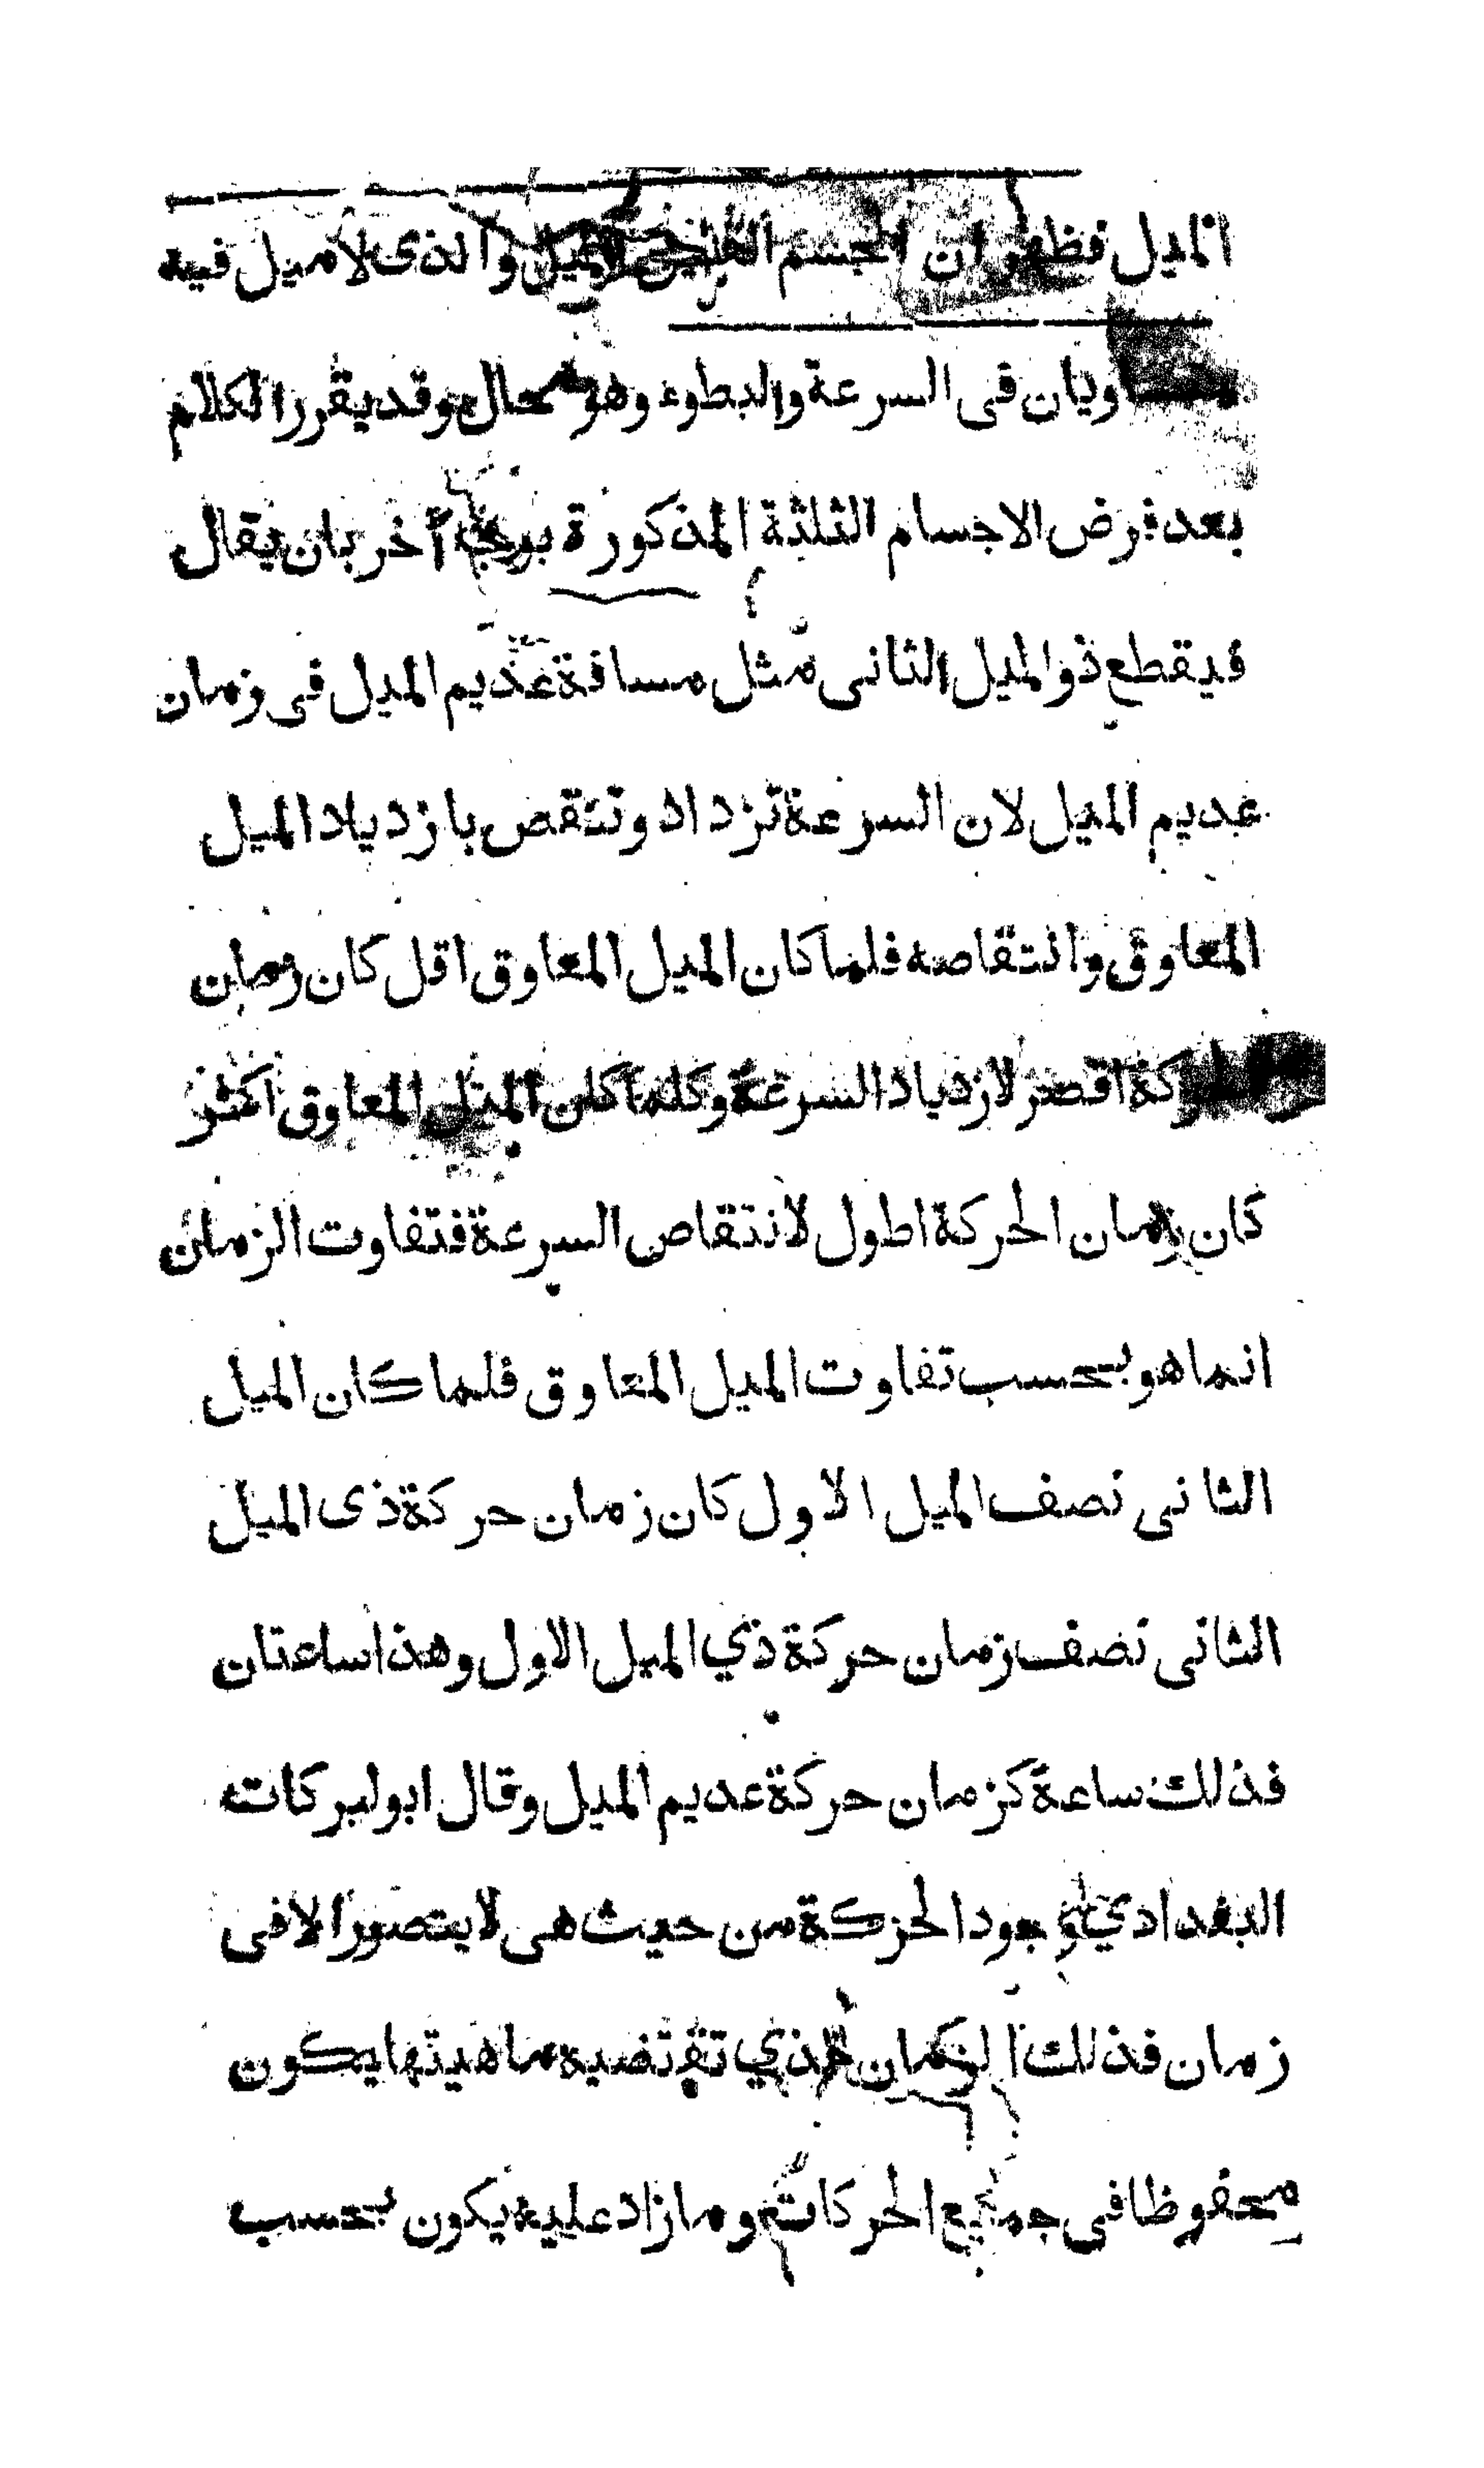 الميل فظهر ان الجسم القليل الميل والذى لا ميل فيه
متساويان فى السرعة والبطوء وهو محال وقد يقرر الكلام
بعد فرض الاجسام الثلثة المذكورة بوجه آخر بان يقال
فيقطع ذو الميل الثانى مثل مسافة عديم الميل فى زمان
عديم الميل لان السرعة تزداد وتنقص بازدياد الميل
المعاوق وانتقاصه فلما كان الميل المعاوق اقل كان زمان
الحركة اقصر لازدياد السرعة وكلما كان الميل المعاوق اكثر
كان زمان الحركة اطول لانتقاص السرعة فتفاوت الزمان
انما هو بحسب تفاوت الميل المعاوق فلما كان الميل
الثانى نصف الميل الاول كان زمان حركة ذى الميل
الثانى نصف زمان حركة ذي الميل الاول وهذا ساعتان
فذلك ساعة كزمان حركة عديم الميل وقال ابو لبركات
البغدادي وجود الحركة من حيث هى لا يتصور الا فى
زمان فذلك الزمان الذي تقتضيه ماهيتها يكون
محفوظا فى جميع الحركات وما زاد عليه يكون بحسب